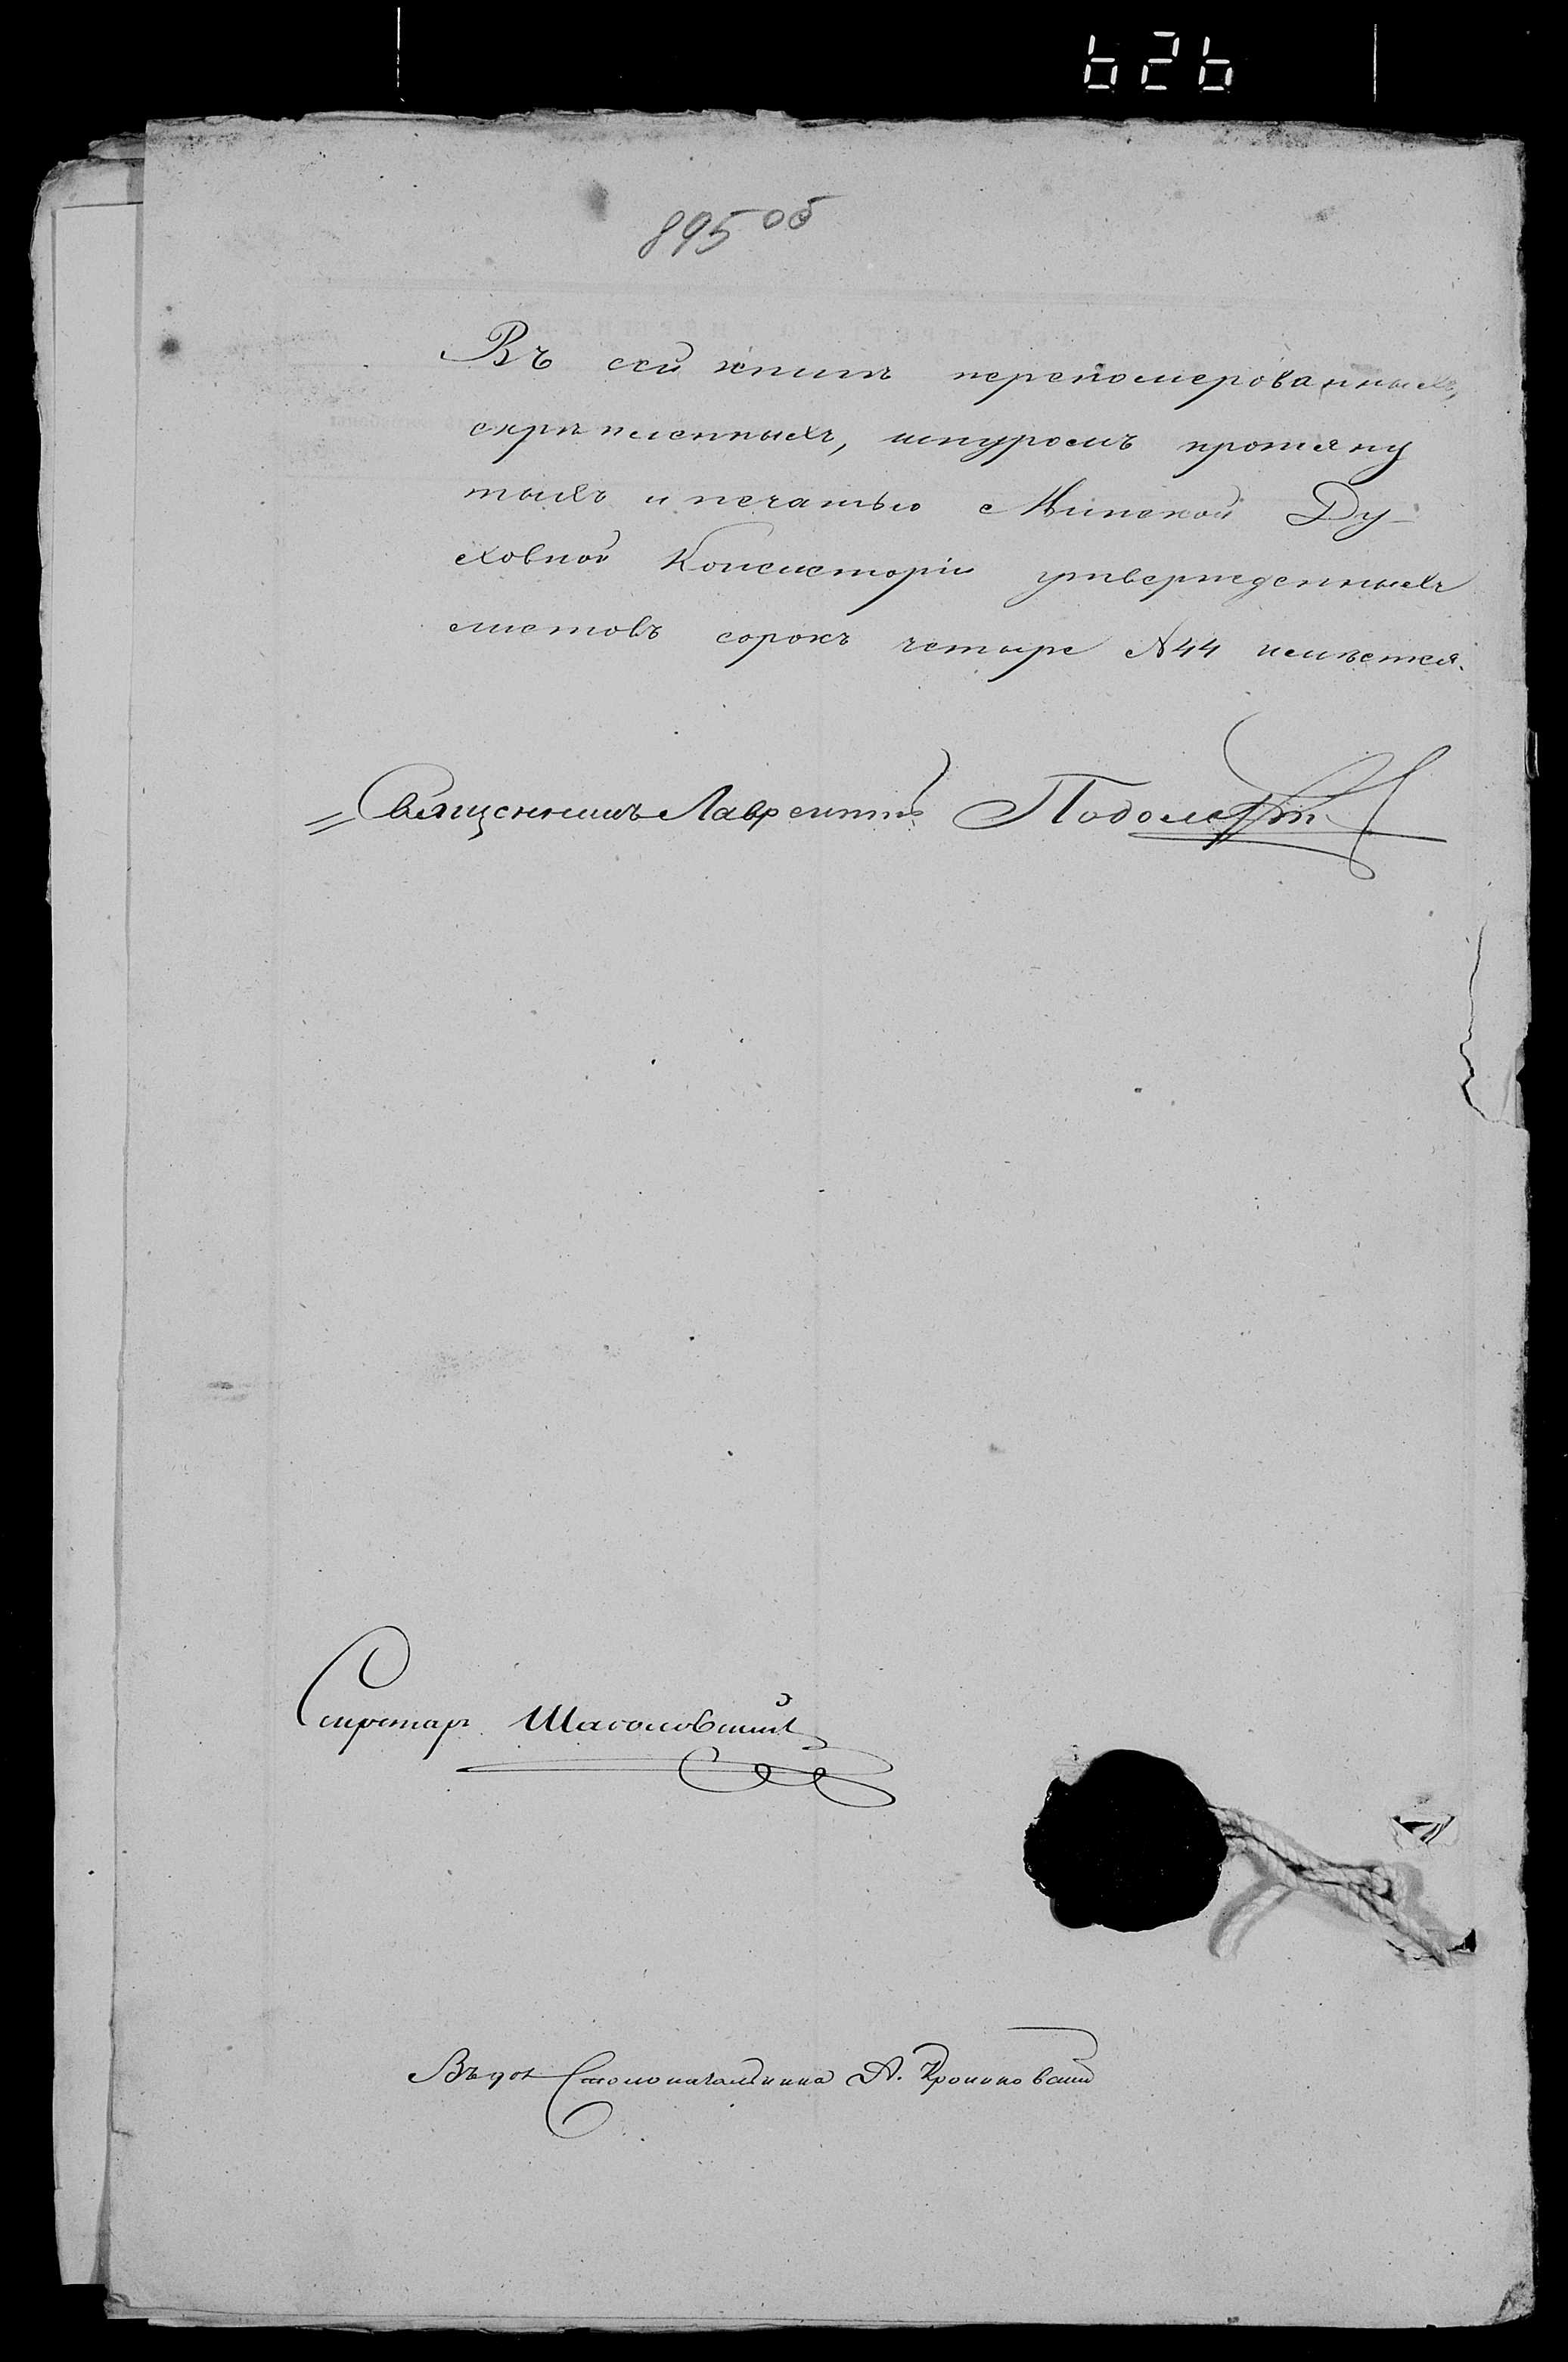 626
895 об
Въ сей книгѣ перепомерованныхъ,
скрѣпленныхъ, шнуромъ протяну
тыхъ и печатью Минской Ду-
ховной Консисторіи утвержденныхъ
листовъ сорокъ четыре № 44 имѣется.
= Священникъ Лаврентій
Секретарь
Столоначальника А.